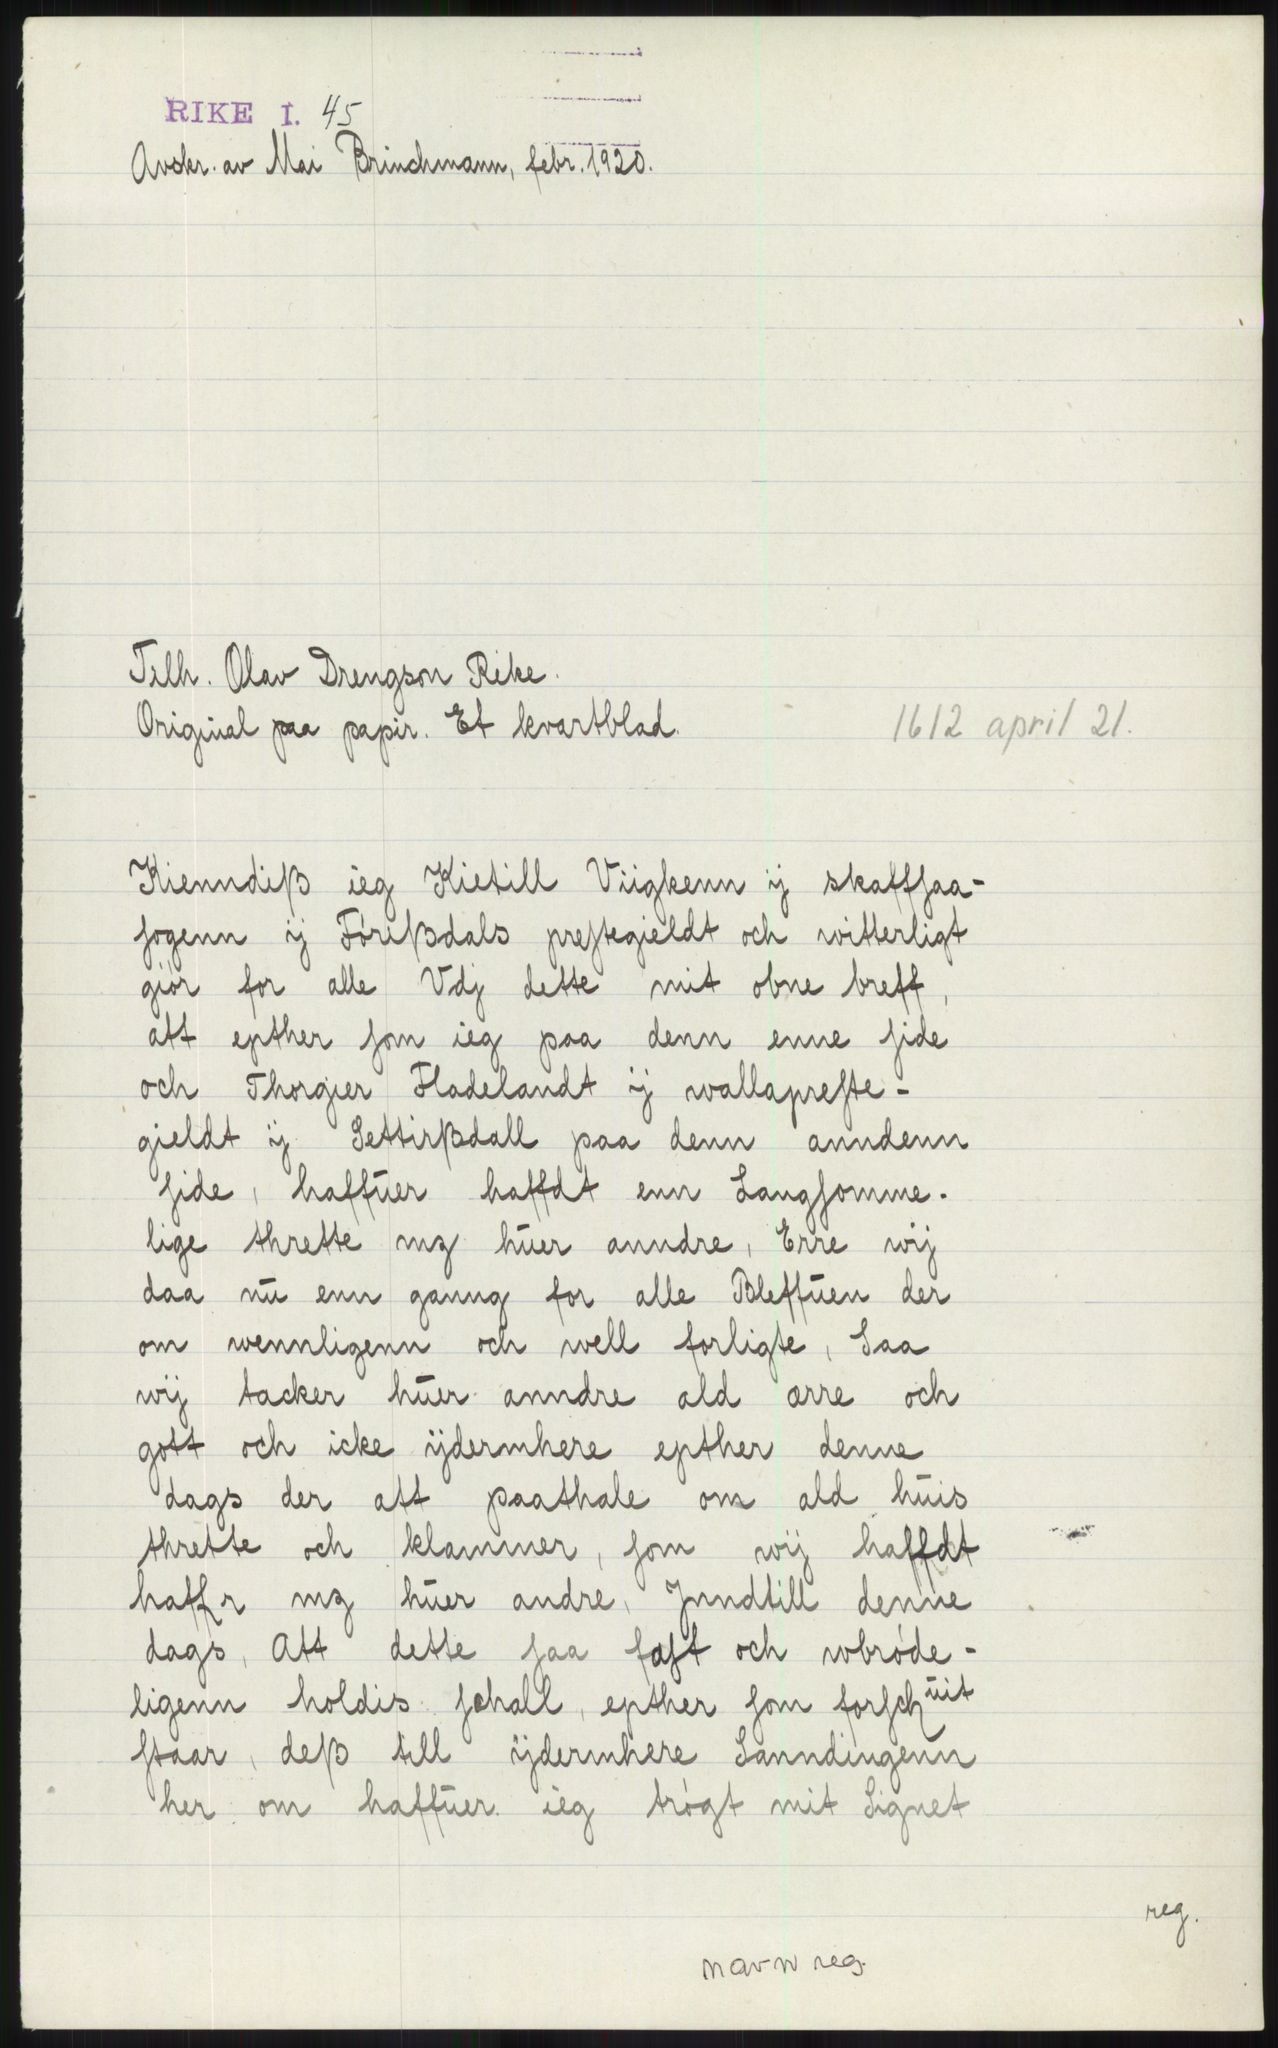 RIKE I. 45
Avskr. av Mai Brinchmann, febr. 1920.
Tilh. Olav Drengson Rike.
Original paa papir. Et kvartblad.
1612 april 21.
Kienndiß ieg Kietill Viigkenn ij skaffsaa-
sogenn ij Fórißdals prestegieldt och witterligt
giór for alle Vdj dette mit obne breff,
att epther som ieg paa denn enne side
och Thorgier Fladelandt ij wallapreste-
gieldt ij Settirßdall paa denn anndenn
side, haffuer haffdt enn Langsomme-
lige thrette mz huer anndre, Erre wij
daa nu enn ganng for alle Bleffuen der
om wennligenn och well forligte, Saa
wij tacker huer anndre ald ærre och
gott och icke ijdermhere epther denne
dags der att paathale om ald huis
thrette och klammer, som wij haffdt
haffr mz huer andre, Jnndtill denne
dags, Att dette saa fast och wbróde-
ligenn holdis schall, epther som forschuit
staar, deß till ijdermhere Sanndingenn
her om haffuer ieg trógt mit Signet
reg.
navn reg.